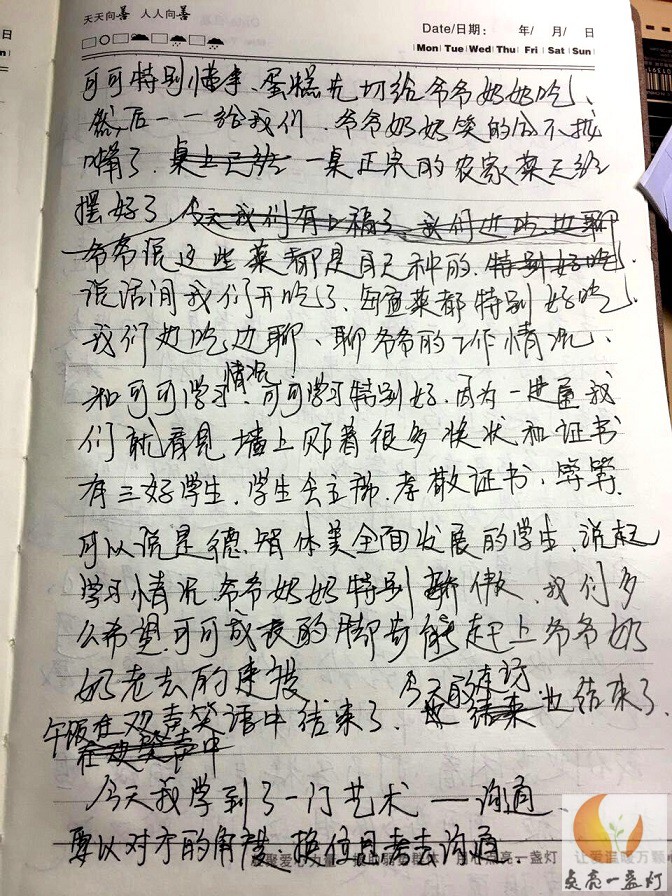 天天向善 人人向善
Date/日期： 年/ 月/ 日
Mon Tue Wed Thu Fri Sat Sun
可可特别懂事、蛋糕先切给爷爷奶奶吃、
然后一一给我们、爷爷奶奶笑的合不拢
嘴了、桌上已经一桌正宗的农家菜已经
摆好了、今天我们有口福了、我们边吃边聊
爷爷说这些菜都是自己种的、特别好吃、
说话间我们开吃了、每道菜都特别好吃、
我们边吃边聊、聊爷爷的工作情况、
和可可学习情况、可可学习特别好、因为一进屋我
们就看见墙上贴着很多奖状和证书
有三好学生、学生会主席、孝敬证书、等等、
可以说是德、智体美全面发展的学生、说起
学习情况、爷爷奶奶特别骄傲、我们多
么希望、可可成长的脚步能赶上爷爷奶
奶老去的速度
今天的走访
午饭在欢声笑语中结束了、也结束也结束了、
在欢笑声中
今天我学到了一门艺术——沟通、
要以对方的角度、换位思考去沟通、
点亮一盏灯